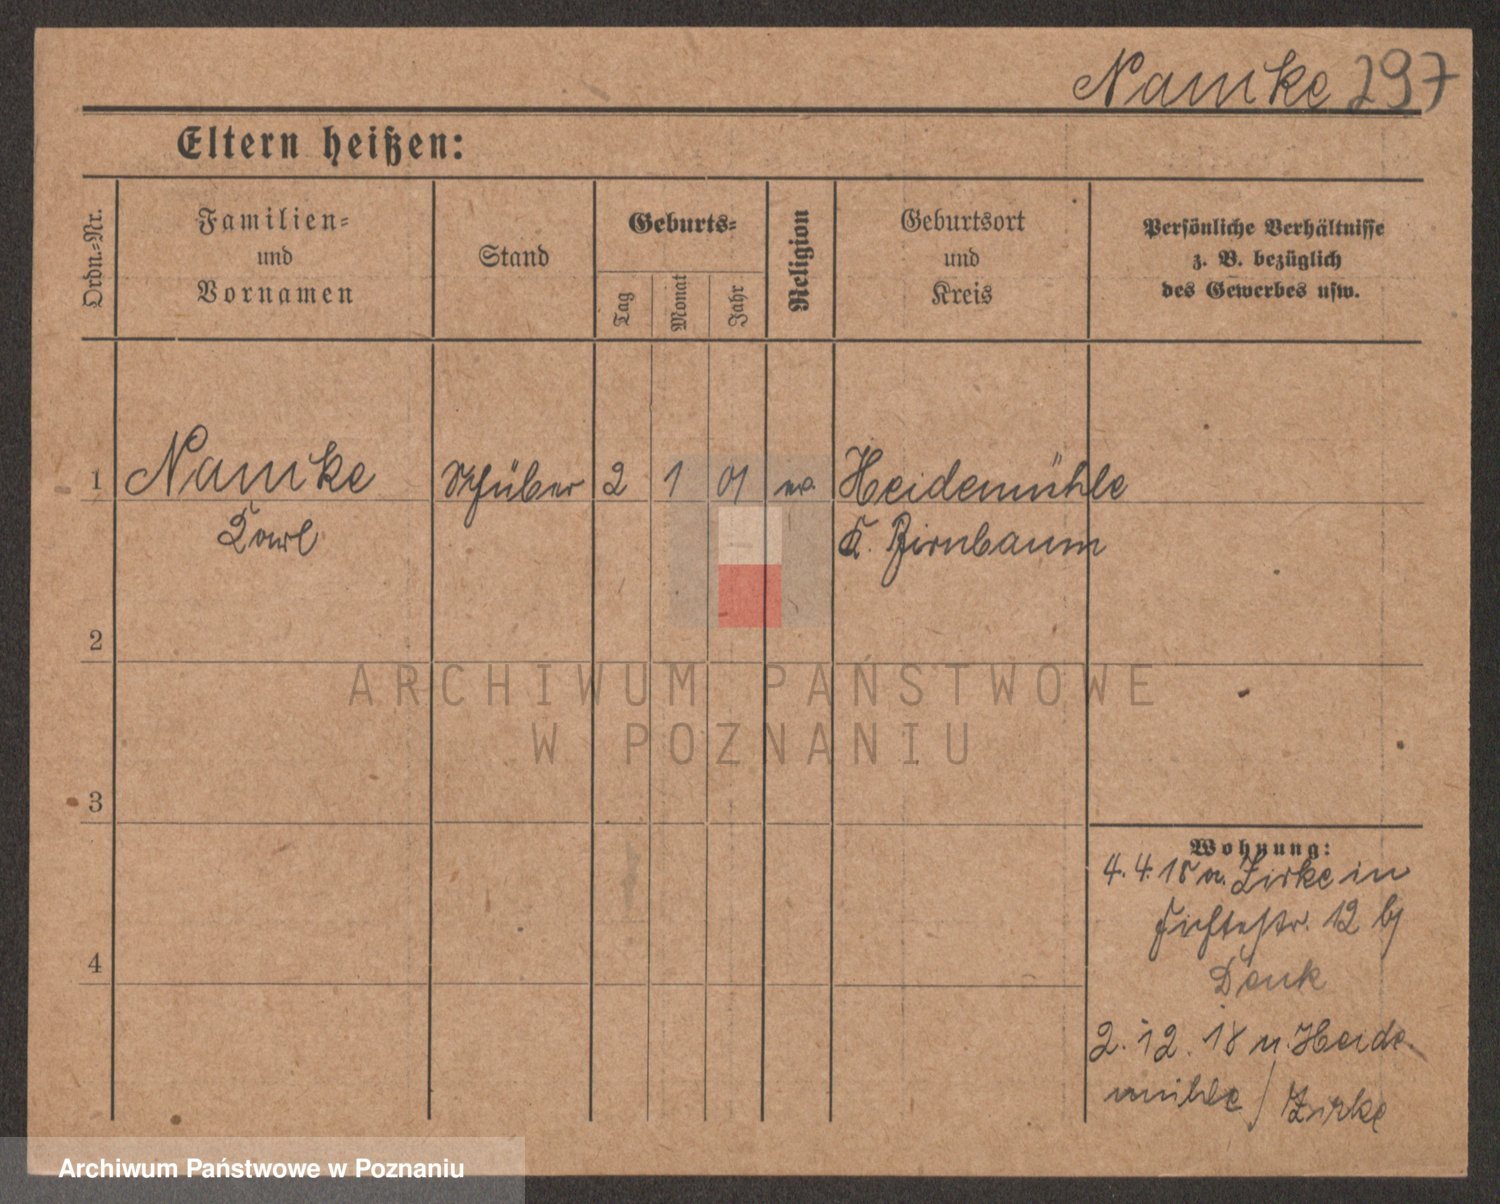 Namke 297
Eltern heißen:
Ordn.=Nr.
Familien=
und
Vornamen
Stand
Geburts=
Tag
Monat
Jahr
Religion
Geburtsort
und
Kreis
Persönliche Verhältnisse
z. B. bezüglich
des Gewerbes usw.
1 Namke 2 1 01 ev. Heidemühle
Karl K. Birnbaum
2
3
4
Wohnung:
4. 4. 18 v. Zirke in
Fichtestr. 12 bj
Denk
2. 12. 18 n. Heide
mühle / Zirke
ARCHIWUM PAŃSTWOWE
W POZNANIU
Archiwum Państwowe w Poznaniu